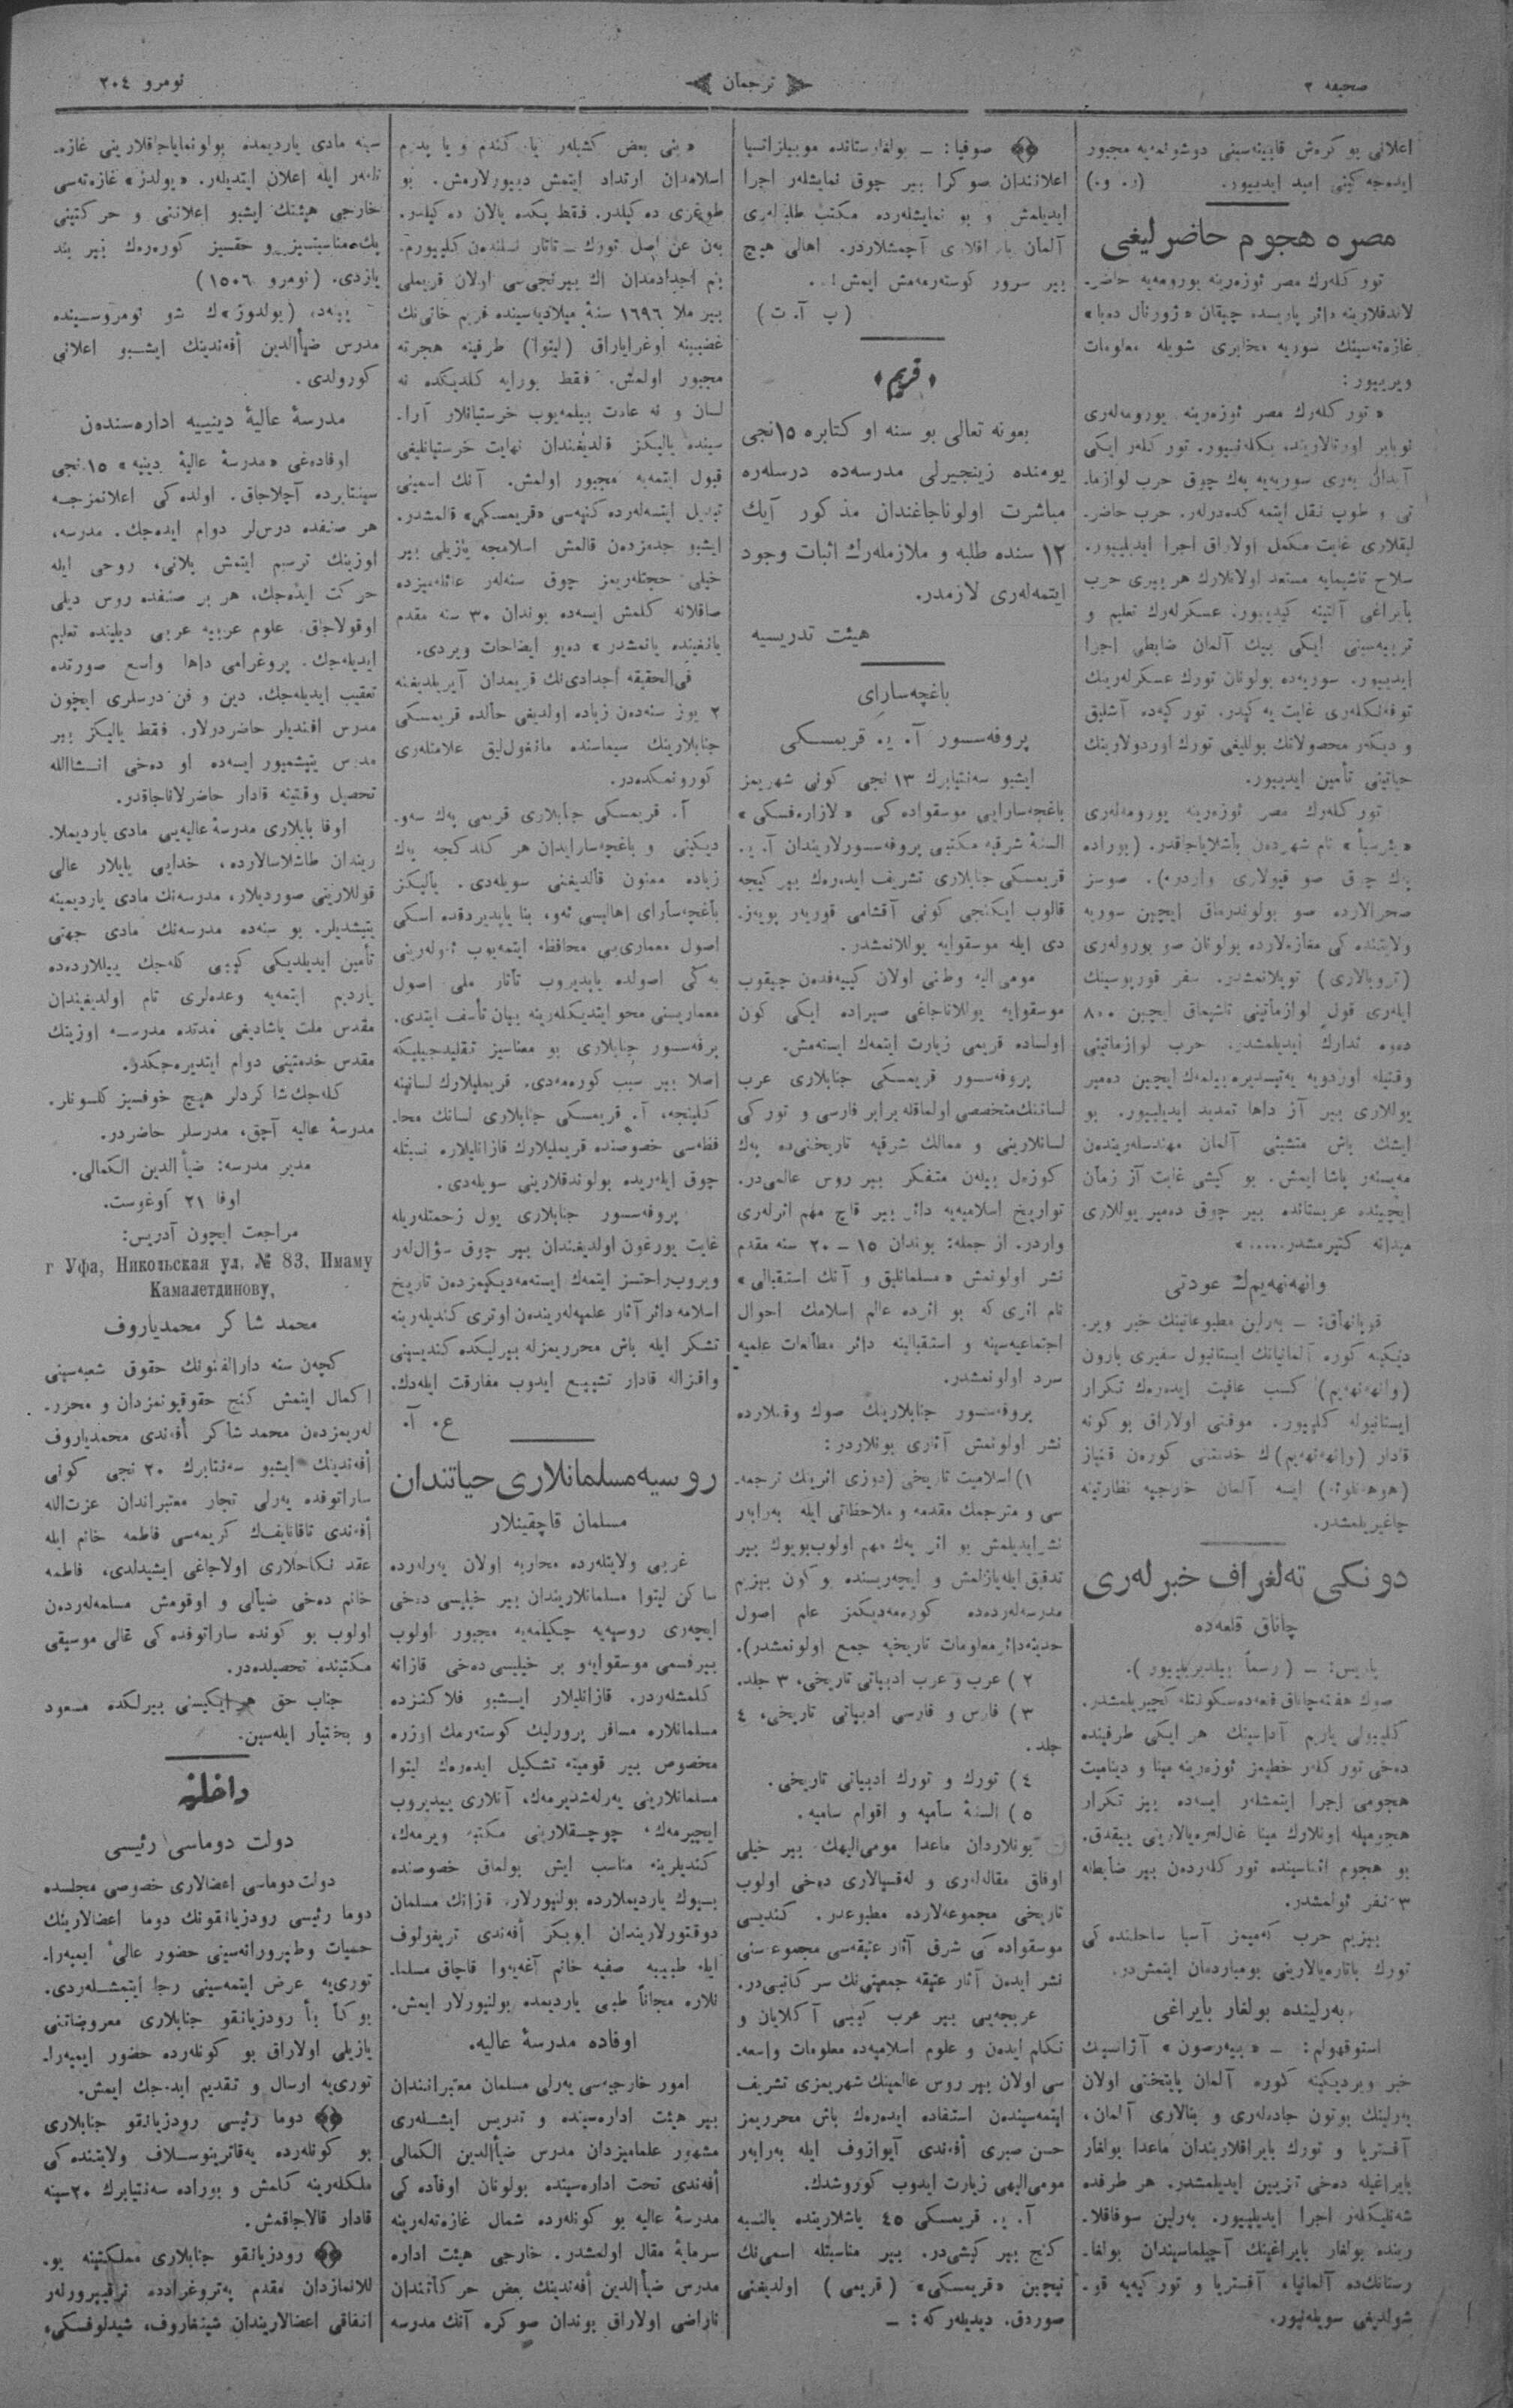 صحیفه ٢
ترجمان
نومرو ٢٠٤
اعلانی بو كره‌ش قابینه‌سینی دوشونمه‌یه مجبور
ایده‌جه‌كینی امید ایدییور. (ر. و.)
مصره هجوم حاضرلیغی
تورکله‌رك مصر ئوزه‌رینه یورومه‌یه حاضر-
لاندقلارینه دائر پاریسده چیقان «ژورنال ده‌با»
غازه‌ته‌سینك سوریه مخابری شویله معلومات
ویرییور:
«تورکله‌رك مصر ئوزه‌رینه یورومه‌له‌ری
نویابر اورتالارینده بکله‌نییور. تورکله‌ر ایکی
آیدان به‌ری سوریه‌یه پك چوق حرب لوازما-
تی و طوپ نقل ایتمه‌کده‌درله‌ر. حرب حاضر-
لیقلاری غایت مکمل اولاراق اجرا ایدیلییور.
سلاح تاشیمایه مستعد اولانلارك هر بیری حرب
بایراغی آلتینه کیدییور. عسکرله‌رك تعلیم و
تربیه‌سینی ایکی بیك آلمان ضابطی اجرا
ایدییور. سوریه‌ده بولونان تورك عسکرله‌رینك
توفه‌نکله‌ری غایت یه‌کیدر. تورکیه‌ده آشلیق
و دیکه‌ر محصولاتك بوللیغی تورك اوردولارینك
حیاتینی تأمین ایدییور.
تورکله‌رك مصر ئوزه‌رینه یورومه‌له‌ری
«بئرسبأ» نام شهرده‌ن باشلایاجاقدر. (بوراده
پك چوق صو قیولاری واردر). صوسز
صحرالارده صو بولوندرماق ایچین سوریه
ولایتنده‌کی مغازه‌لارده بولونان صو بوروله‌ری
(تروبالاری) توپلانمشدر. سفر قوریوسینك
ایله‌ری قول لوازماتینی تاشیماق ایچین ٨٠٠
ده‌وه تدارك ایدیلمشدر. حرب لوازماتینی
وقتیله اوردویه یه‌تیشدیره‌بیلمه‌ك ایچین ده‌میر
یوللاری بیر آز داها تمدید ایدیلییور. بو
ایشك باش متشبثی آلمان مهندسله‌رینده‌ن
مه‌یسنه‌ر پاشا ایمش. بو کیشی غایت آز زمان
ایچینده عربستانده بیر چوق ده‌میر یوللاری
میدانه کتیرمشدر.....»
وانهه‌نهه‌یم‌ك عودتی
قوپانهاق: ــ به‌رلین مطبوعاتینك خبر ویر-
دیکینه کوره آلمانیانك ایستانبول سفیری بارون
(وانهه‌نهه‌یم) کسب عافیت ایده‌رك تکرار
ایستانبوله کلییور. موقتی اولاراق بو کونه
قادار (وانهه‌نهه‌یم)ك خدمتنی کوره‌ن قنیاز
(هوهه‌نلوئه) ایسه آلمان خارجیه نظارتینه
چاغیریلمشدر.
دونکی ته‌لغراف خبرله‌ری
چاناق قلعه‌ده
پاریس: ــ (رسماً بیلدیریلییور).
صوك هفته چاناق قلعه‌ده سکونتله کچیریلمشدر.
کلیبولی یاریم آداسینك هر ایکی طرفینده
ده‌خی تورکله‌ر خطیمز ئوزه‌رینه مینا و دینامیت
هجومی اجرا ایتمشله‌ر ایسه‌ده بیز تکرار
هجومیله اونلارك مینا غاله‌ره‌یالارینی ییقدق.
بو هجوم اثناسینده تورکله‌رده‌ن بیر ضابطله
٣ نفر ئولمشدر.
بیزیم حرب که‌میمز آسیا ساحلنده‌کی
تورك باتاره‌یالارینی بومباردمان ایتمش‌در.
به‌رلینده بولغار بایراغی
استوقهولم: ــ «بیه‌رصون» آژانسینك
خبر ویردیکینه کوره آلمان پایتختی اولان
به‌رلینك بوتون جاده‌له‌ری و بنالاری آلمان،
آفستریا و تورك بایراقلاریندان ماعدا بولغار
بایراغیله ده‌خی تزیین ایدیلمشدر. هر طرفده
شه‌نلیکله‌ر اجرا ایدیلییور. به‌رلین سوقاقلا-
رینده بولغار بایراغینك آچیلماسیندان بولغا-
رستانك‌ده آلمانیا، آفستریا و تورکیه‌یه قو-
شولدیغی سویله‌نییور.
صوفیا: ــ بولغارستانده موبیلیزاتسیا
اعلانندان صوکرا بیر چوق نمایشله‌ر اجرا
ایدیلمش و بو نمایشله‌رده مکتب طلبه‌له‌ری
آلمان بایراقلاری آچمشلاردر. اهالی هیچ
بیر سرور کوسته‌رمه‌مش ایمش!..
(پ آ. ت)
«قریم»
بعونه تعالی بو سنه اوکتابره ١٥نجی
یومنده زینجیرلی مدرسه‌ده درسله‌ره
مباشرت اولوناجاغندان مذکور آیك
١٢ سنده طلبه و ملازمله‌رك اثبات وجود
ایتمه‌له‌ری لازمدر.
هیئت تدریسیه
باغچه‌سارای
پروفه‌سسور آ. یه. قریمسکی
ایشبو سه‌نتیابرك ١٣نجی کونی شهریمز
باغچه‌سارایی موسقواده‌کی «لازاره‌فسکی»
السنۀ شرقیه مکتبی پروفه‌سسورلاریندان آ. یه.
قریمسکی جنابلاری تشریف ایده‌رك بیر کیجه
قالوب ایکنجی کونی آقشامی قوریه‌ر پویه‌ز-
دی ایله موسقوایه یوللانمشدر.
مومی الیه وطنی اولان کییه‌فده‌ن چیقوب
موسقوایه یوللاناجاغی صیراده ایکی کون
اولساده قریمی زیارت ایتمه‌ك ایسته‌مش.
پروفه‌سسور قریمسکی جنابلاری عرب
لسانینك متخصصی اولماقله برابر فارسی و تورکی
لسانلارینی و ممالك شرقیه تاریخنی‌ده پك
کوزه‌ل بیله‌ن متفکر بیر روس عالمی‌در.
تواریخ اسلامیه‌یه دائر بیر قاچ مهم اثرله‌ری
واردر. از جمله: بوندان ١٥ ــ ٢٠ سنه مقدم
نشر اولونمش «مسلمانلیق و آنك استقبالی»
نام اثری که بو اثرده عالم اسلامك احوال
اجتماعیه‌سینه و استقبالینه دائر مطالعات علمیه
سرد اولونمشدر.
پروفه‌سسور جنابلارینك صوك وقتلارده
نشر اولونمش آثاری بونلاردر:
١) اسلامیت تاریخی (دوزی اثرینك ترجمه-
سی و مترجمك مقدمه و ملاحظاتی ایله به‌رابه‌ر
نشر ایدیلمش بو اثر پك مهم اولوب بویوك بیر
تدقیق ایله یازلمش و ایچه‌ریسنده بو کون بیزیم
مدرسه‌له‌رده‌ده کوره‌مه‌دیکمز علم اصول
حدیثه دائر معلومات تاریخیه جمع اولونمشدر).
٢) عرب و عرب ادبیاتی تاریخی، ٣ جلد.
٣) فارس و فارسی ادبیاتی تاریخی، ٤
جلد.
٤) تورك و تورك ادبیاتی تاریخی.
٥) السنۀ سامیه و اقوام سامیه.
بونلاردان ماعدا مومی‌الیهك بیر خیلی
اوفاق مقاله‌له‌ری و له‌قسیالاری ده‌خی اولوب
تاریخی مجموعه‌لارده مطبوعدر. کندیسی
موسقواده‌کی شرق آثار عتیقه‌سی مجموعه‌سنی
نشر ایده‌ن آثار عتیقه جمعیتی‌نك سرکاتبی‌در.
عربجه‌یی بیر عرب کیبی آکلایان و
تکلم ایده‌ن و علوم اسلامیه‌ده معلومات واسعه-
سی اولان بیر روس عالمینك شهریمزی تشریف
ایتمه‌سینده‌ن استفاده ایده‌رك باش محرریمز
حسن صبری أفه‌ندی آیوازوف ایله به‌رابه‌ر
مومی‌الیهی زیارت ایدوب کوروشدك.
آ. یه. قریمسکی ٤٥ یاشلارینده بالنسبه
کنج بیر کیشی‌در. بیر مناسبتله اسمی‌نك
نیچین «قریمسکی» (قریمی) اولدیغنی
صوردق. دیدیله‌رکه: ــ
«بنی بعض کشیله‌ر یا کندم و یا پدرم
اسلامدان ارتداد ایتمش دییورلارمش. بو
طوغری ده‌کیلدر. فقط پکده یالان ده‌کیلدر.
به‌ن عن اصل تورك ــ تاتار نسلنده‌ن کلییورم.
بنم اجدادمدان اك بیرنجی‌سی اولان قریملی
بیر ملا ١٦٩٦ سنۀ میلادیه‌سینده قریم خانی‌نك
غضبینه اوغرایاراق (لیتوا) طرفینه هجرته
مجبور اولمش. فقط بورایه کلدیکده نه
لسان و نه عادت بیلمه‌یوب خرستیانلار آرا-
سینده یالیکز قالدیغندان نهایت خرستیانلیغی
قبول ایتمه‌یه مجبور اولمش. آنك اسمینی
تبدیل ایتسه‌له‌رده کنیه‌سی «قریمسکی» قالمشدر.
ایشبو جدمزده‌ن قالمش اسلامجه یازیلی بیر
خیلی حجتله‌ریمز چوق سنه‌له‌ر عائله‌میزده
صاقلانه کلمش ایسه‌ده بوندان ٣٠ سنه مقدم
یانغینده یانمشدر» ده‌یو ایضاحات ویردی.
فی‌الحقیقه أجدادی‌نك قریمدان آیریلدیغینه
٢ یوز سنه‌ده‌ن زیاده اولدیغی حالده قریمسکی
جنابلارینك سیماسنده مانغول‌لیق علامتله‌ری
کورونمکده‌در.
آ. قریمسکی جنابلاری قریمی پك سه‌و-
دیکینی و باغچه‌سارایدان هر کلدکجه پك
زیاده ممنون قالدیغنی سویله‌دی. یالیکز
باغچه‌سارای اهالیسی ئه‌و، بنا یاپدیردقده اسکی
اصول معماری‌یی محافظه ایتمه‌یوب ئه‌وله‌رینی
یه‌کی اصولده یاپدیروب تاتار ملی اصول
معماریسنی محو ایتدیکله‌رینه بیان تأسف ایتدی.
پرفه‌سسور جنابلاری بو معناسیز تقلیدجیلیکه
اصلا بیر سبب کوره‌مه‌دی. قریملیلارك لسانینه
کلینجه، آ. قریمسکی جنابلاری لسانك محا-
فظه‌سی خصوصنده قریملیلارك قازانلیلاره نسبتله
چوق ایله‌ریده بولوندقلارینی سویله‌دی.
پروفه‌سسور جنابلاری یول زحمتله‌ریله
غایت یورغون اولدیغندان بیر چوق سؤال‌له‌ر
ویروب راحتسز ایتمه‌ك ایسته‌مه‌دیکیمزده‌ن تاریخ
اسلامه دائر آثار علمیه‌له‌رینده‌ن اوتری کندیله‌رینه
تشکر ایله باش محرریمزله بیرلیکده کندیسینی
واقزاله قادار تشییع ایدوب مفارقت ایله‌دك.
ع. آ.
روسیه مسلمانلاری حیاتندان
مسلمان قاچقینلار
غربی ولایتله‌رده محاربه اولان یه‌رله‌رده
ساکن لیتوا مسلمانلاریندان بیر خیلیسی ده‌خی
ایچه‌ری روسیه‌یه چکیلمه‌یه مجبور اولوب
بیر قسمی موسقوایه و بر خیلیسی ده‌خی قازانه
کلمشله‌ردر. قازانلیلار ایشبو فلاکتزده
مسلمانلاره مسافر پرورلیك کوسته‌رمك اوزره
مخصوص بیر قومیته تشکیل ایده‌ره‌ك لیتوا
مسلمانلارینی یه‌رله‌شدیرمه‌ك، آنلاری ییدیروب
ایچیرمه‌ك، چوجقلارینی مکتبه ویرمه‌ك،
کندیلرینه مناسب ایش بولماق خصوصنده
بیوك یاردیملارده بولنیورلار. قزانك مسلمان
دوقتورلاریندان ابوبکر أفه‌ندی تریغولوف
ایله طبیبه صفیه خانم آغه‌یه‌وا قاچاق مسلما-
نلاره مجاناً طبی یاردیمده بولنیورلار ایمش.
اوفاده مدرسۀ عالیه.
امور خارجیه‌سی یه‌رلی مسلمان معتبرانندان
بیر هیئت اداره‌سینده و تدریس ایشله‌ری
مشهور علمامیزدان مدرس ضیاءالدین الکمالی
أفه‌ندی تحت اداره‌سینده بولونان اوفاده‌کی
مدرسۀ عالیه بو کونله‌رده شمال غازه‌ته‌له‌رینه
سرمایۀ مقال اولمشدر. خارجی هیئت اداره
مدرس ضیاءالدین أفه‌ندینك بعض حرکاتندان
ناراضی اولاراق بوندان صوکره آنك مدرسه
سینه مادی یاردیمده بولونمایاجاقلارینی غازه-
ته‌له‌ر ایله اعلان ایتدیله‌ر. «یولدز» غازه‌ته‌سی
خارجی هیئتك ایشبو إعلاننی و حرکتینی
پك مناسبتسیز و حقسیز کوره‌ره‌ك بیر بند
یازدی. (نومرو ١٥٠٦)
یینه‌ده، (یولدوز)ك شو نومروسینده
مدرس ضیاءالدین أفه‌ندینك ایشبو اعلانی
کورولدی.
مدرسۀ عالیۀ دینییه اداره‌سندەن
اوفاده‌غی «مدرسۀ عالیۀ دینیه» ١٥.نجی
سینتابرده آچلاجاق. اولده‌کی اعلانمزجه
هر صنفده درس‌لر دوام ایده‌جك. مدرسه،
اوزینك ترسیم ایتمش پلانی، روحی ایله
حرکت ایده‌جك، هر بر صنفده روس دیلی
اوقولاجاق. علوم عربیه عربی دیلینده تعلیم
ایدیله‌جك. پروغرامی داها واسع صورتده
تعقیب ایدیله‌جك. دین و فن درسلری ایچون
مدرس افندیلر حاضردرلار. فقط یالیکز بیر
مدرس یتیشمیور ایسه‌ده او ده‌خی انشاالله
تحصیل وقتینه قادار حاضرلاناجاقدر.
اوفا بایلاری مدرسۀ عالیه‌یی مادی یاردیملا-
ریندان طاشلاسالارده، خدایی بایلار عالی
قوللارینی صوردیلار، مدرسه‌نك مادی یاردیمینه
یتیشدیلر. بو سنه‌ده مدرسه‌نك مادی جهتی
تأمین ایدیلدیکی کیبی کله‌جك ییللارده‌ده
یاردیم ایتمه‌یه وعده‌لری تام اولدیغیندان
مقدس ملت یاشادیغی مدتده مدرسه اوزینك
مقدس خدمتینی دوام ایتدیره‌جکدر.
کله‌جك شاکردلر هیچ خوفسیز کلسونلر.
مدرسۀ عالیه آچق، مدرسلر حاضردر.
مدیر مدرسه: ضیاءالدین الکمالی.
اوفا ٢١ آوغوست.
مراجعت ایچون آدریس:
г Уфа, Никольская ул. № 83, Имаму
Камалетдинову,
محمد شاکر محمدیاروف
کچه‌ن سنه دارالفنونك حقوق شعبه‌سینی
اکمال ایتمش کنج حقوقیونمزدان و محرر-
له‌ریمزده‌ن محمد شاکر أفه‌ندی محمدیاروف
أفه‌ندینك ایشبو سه‌نتابرك ٢٠ نجی کونی
ساراتوفده یه‌رلی تجار معتبراندان عزت‌الله
أفه‌ندی تاقانایف‌ك کریمه‌سی فاطمه خانم ایله
عقد نکاحلاری اولاجاغی ایشیدلدی. فاطمه
خانم ده‌خی ضیالی و اوقومش مسلمه‌له‌رده‌ن
اولوب بو کونده ساراتوفده‌کی عالی موسیقی
مکتبنده تحصیلده‌در.
جناب حق هر ایکیسنی بیرلکده مسعود
و بختیار ایله‌سین.
داخلیه
دولت دوماسی رئیسی
دولت دوماسی اعضالاری خصوصی مجلسده
دوما رئیسی رودزیانقونك دوما اعضالارینك
حسیات وطنپرورانه‌سینی حضور عالیٔ ایمپه‌را-
توری‌یه عرض ایتمه‌سینی رجا ایتمشله‌ردی.
بوکا بنأ رودزیانقو جنابلاری معروضاتنی
یازیلی اولاراق بو کونله‌رده حضور ایمپه‌را-
توری‌یه ارسال و تقدیم ایده‌جك ایمش.
دوما رئیسی رودزیانقو جنابلاری
بو کونله‌رده یه‌قاترینوسلاف ولایتنده‌کی
ملکله‌رینه کلمش و بوراده سه‌نتیابرك ٢٠سینه
قادار قالاجاقمش.
رودزیانقو جنابلاری مملکتینه یو-
للانمازدان مقدم په‌تروغرادده ترقیپرورله‌ر
اتفاقی اعضالاریندان شینغاروف، شیدلوفسکی،